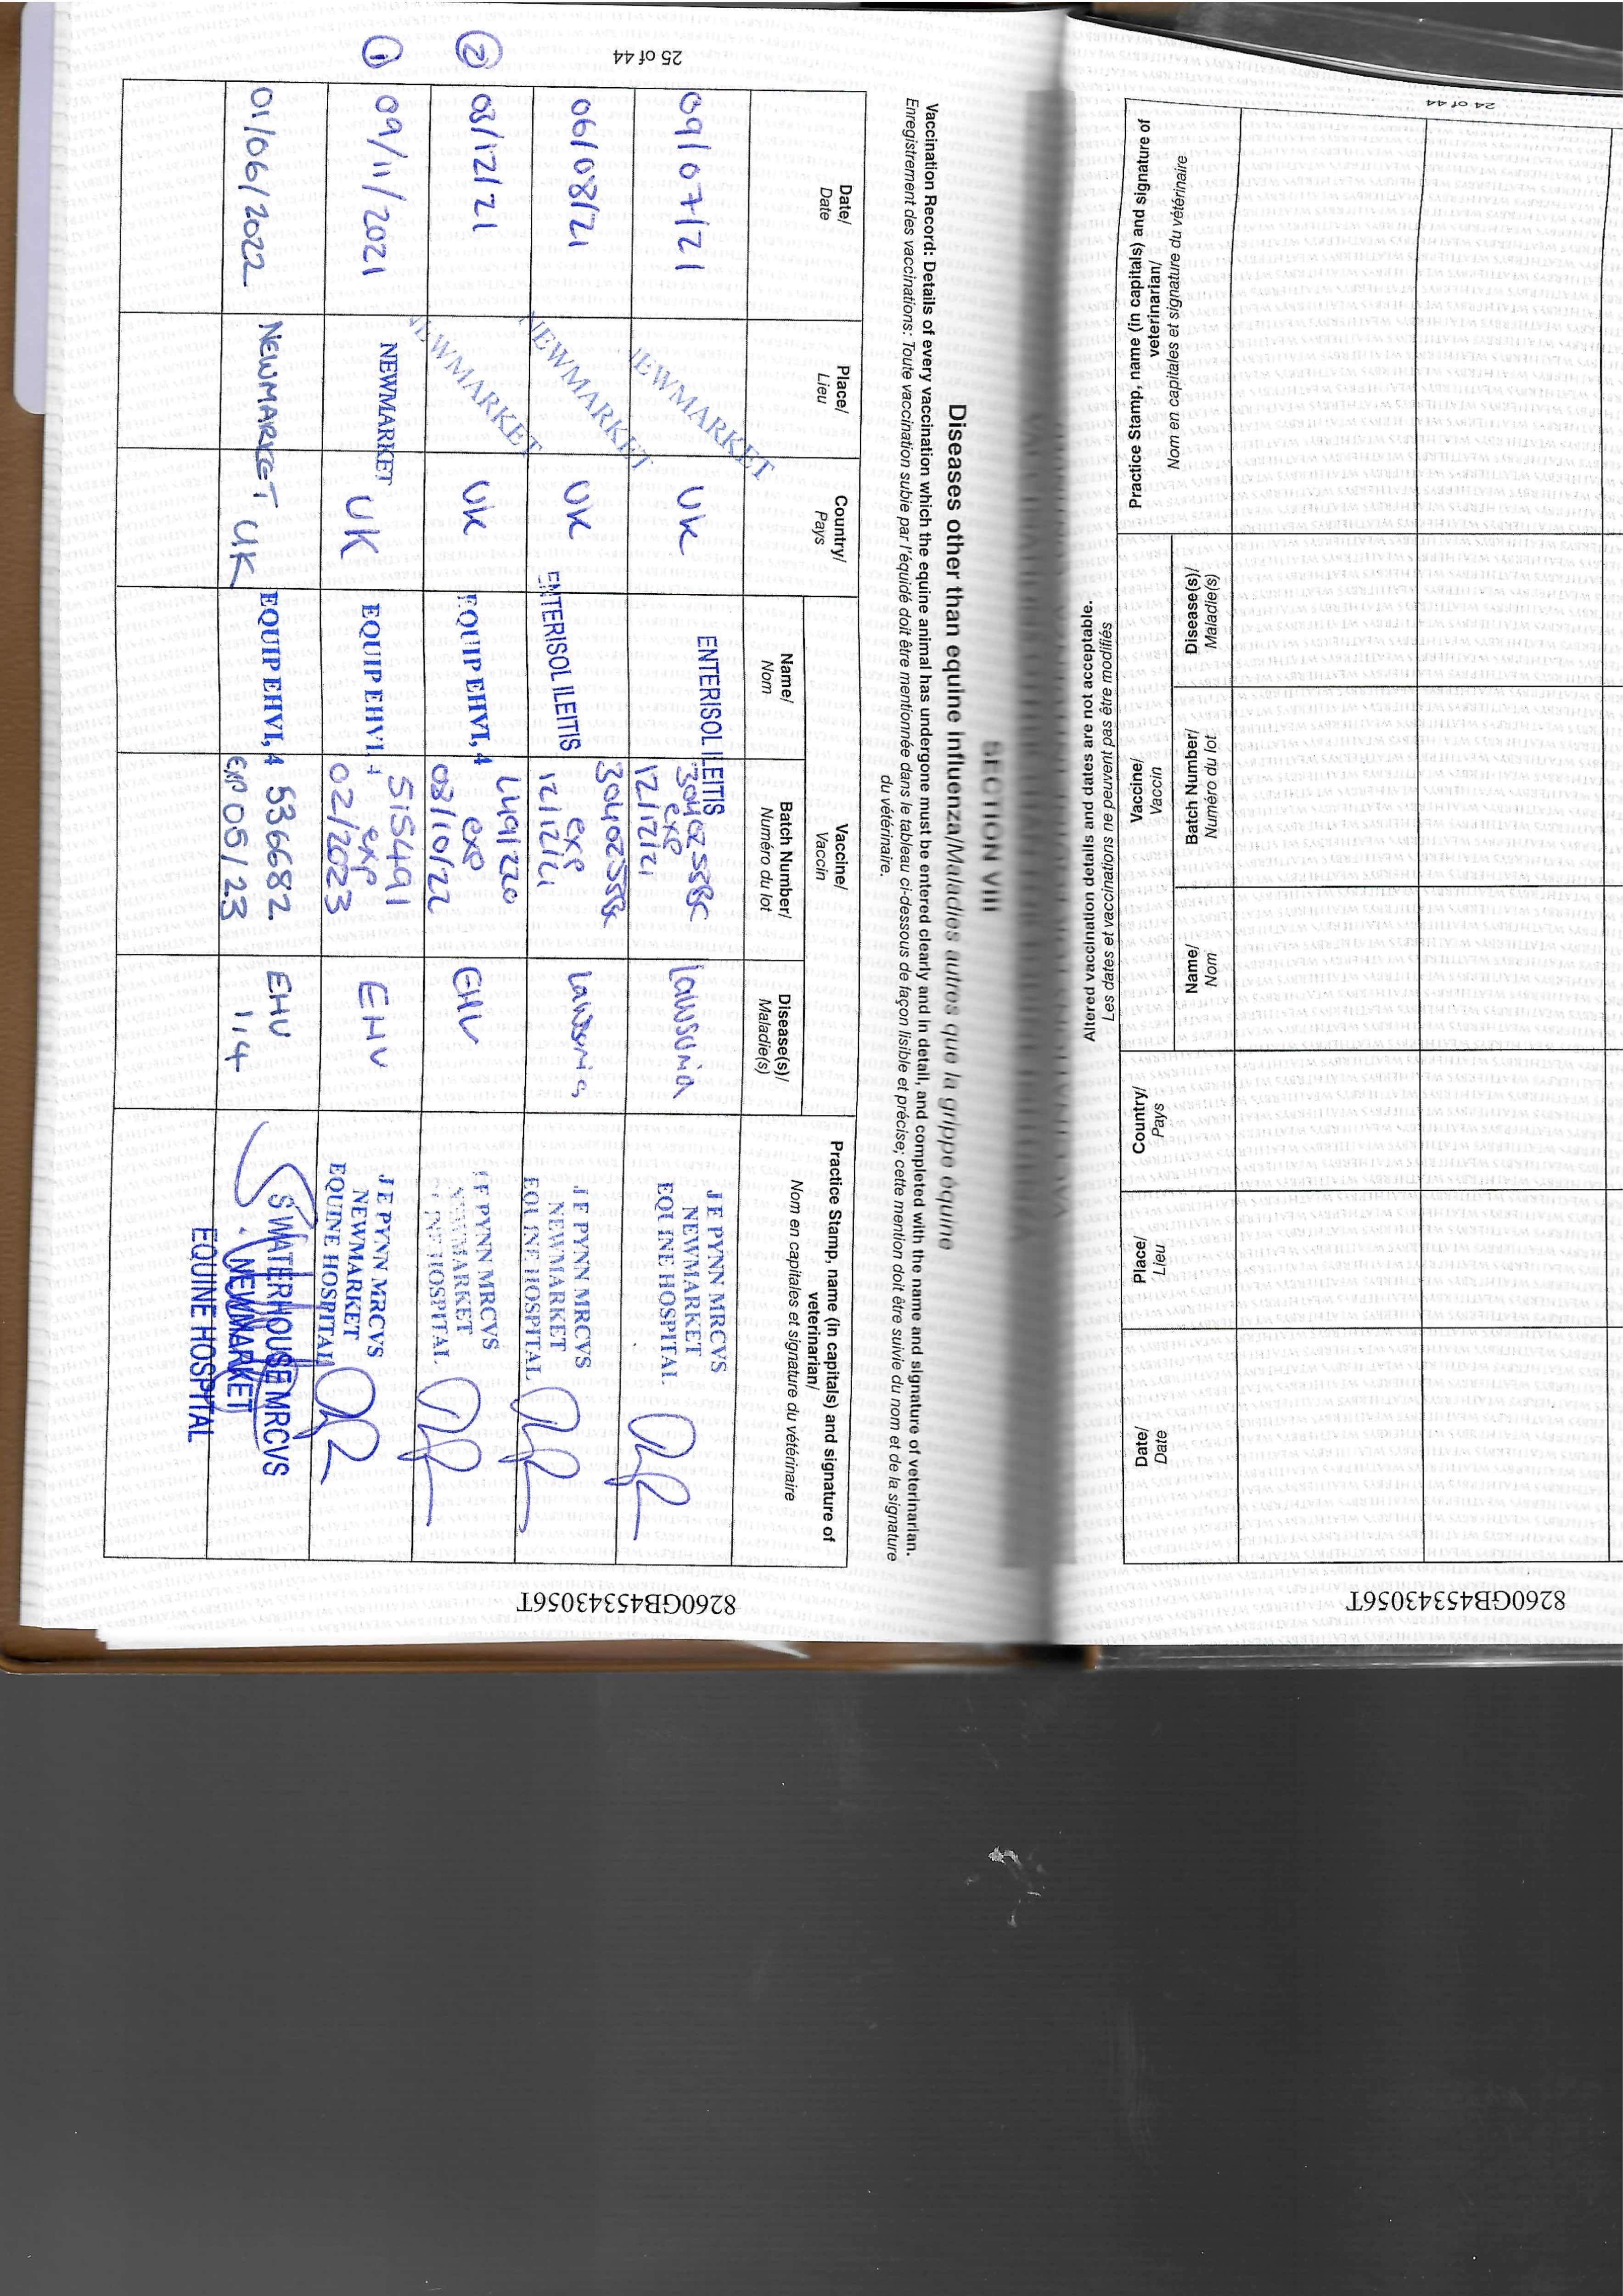 24 of 44
Practice Stamp, name (in capitals) and signature of
veterinarian/
Nom en capitales et signature du vétérinaire
Vaccine/
Vaccin
Disease(s)/
Maladie(s)
Batch Number/
Numéro du lot
Name/
Nom
Country/
Pays
Place/
Lieu
Date/
Date
Altered vaccination details and dates are not acceptable.
Les dates et vaccinations ne peuvent pas être modifiés
8260GB45343056T
SECTION VIII
Diseases other than equine influenza/Maladies autres que la grippe équine
Vaccination Record: Details of every vaccination which the equine animal has undergone must be entered clearly and in detail, and completed with the name and signature of veterinarian.
Enregistrement des vaccinations: Toute vaccination subie par l'équidé doit être mentionnée dans le tableau ci-dessous de façon lisible et précise; cette mention doit être suivie du nom et de la signature
du vétérinaire.
Date/
Date
Place/
Lieu
Country/
Pays
Vaccine/
Vaccin
Name/
Nom
Batch Number/
Numéro du lot
Disease(s)/
Maladie(s)
Practice Stamp, name (in capitals) and signature of
veterinarian/
Nom en capitales et signature du vétérinaire
09/07/21
NEWMARKET
UK
ENTERISOL ILEITIS
exp
12/12/21
lawsonia
J E PYNN MRCVS
NEWMARKET
EQUINE HOSPITAL
06/08/21
NEWMARKET
UK
ENTERISOL ILEITIS
exp
12/12/21
lawsonia
J E PYNN MRCVS
NEWMARKET
EQUINE HOSPITAL
2
08/12/21
NEWMARKET
UK
EQUIP EHV1,4
L491220
exp
08/10/22
EHV
J E PYNN MRCVS
NEWMARKET
EQUINE HOSPITAL
1
09/11/2021
NEWMARKET
UK
EQUIP EHV1,4
515491
exp
02/2023
EHV
J E PYNN MRCVS
NEWMARKET
EQUINE HOSPITAL
01/06/2022
NEWMARKET
UK
EQUIP EHV1,4
536682
EXP 05/23
EHV
1,4
S WATERHOUSE MRCVS
NEWMARKET
EQUINE HOSPITAL
25 of 44
8260GB45343056T